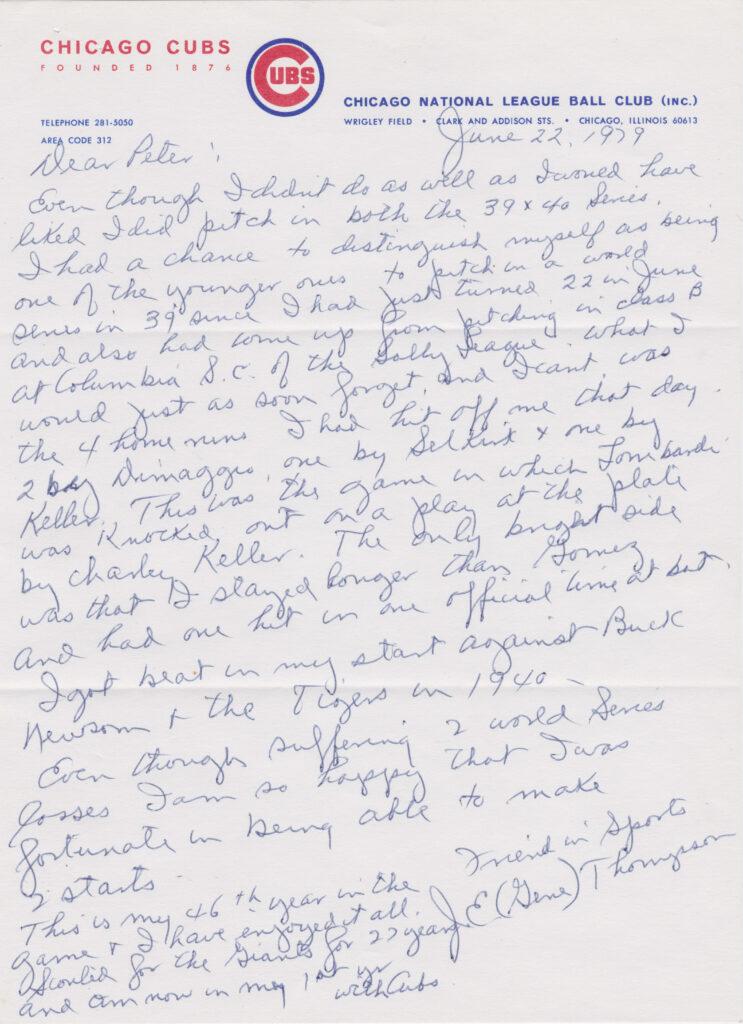 CHICAGO CUBS
FOUNDED 1876
CUBS
CHICAGO NATIONAL LEAGUE BALL CLUB (INC.)
TELEPHONE 281-5050
AREA CODE 312
WRIGLEY FIELD • CLARK AND ADDISON STS. • CHICAGO, ILLINOIS 60613
June 22, 1979
Dear Peter:
Even though I didn't do as well as I would have
liked I did pitch in both the 39 & 40 Series.
I had a chance to distinguish myself as being
one of the younger ones to pitch in a world
series in 39 since I had just turned 22 in June
and also had come up from pitching in class B
at Columbia S.C. of the Sally League. What I
would just as soon forget, and I cant, was
the 4 home runs I had hit off me that day.
2 by Dimaggio, one by Selkirk & one by
Keller. This was the game in which Lombardi
was knocked out on a play at the plate
by Charley Keller. The only bright side
was that I stayed longer than Gomez
and had one hit in one official time at bat.
I got beat in my start against Buck
Newsom & the Tigers in 1940 -
Even though suffering 2 world Series
losses I am so happy that I was
fortunate in being able to make
2 starts.
Friend in Sports
J E (Gene) Thompson
This is my 46th year in the
game & I have enjoyed it all.
Scouted for the Giants for 27 years
and am now in my 1st yr
with Cubs.